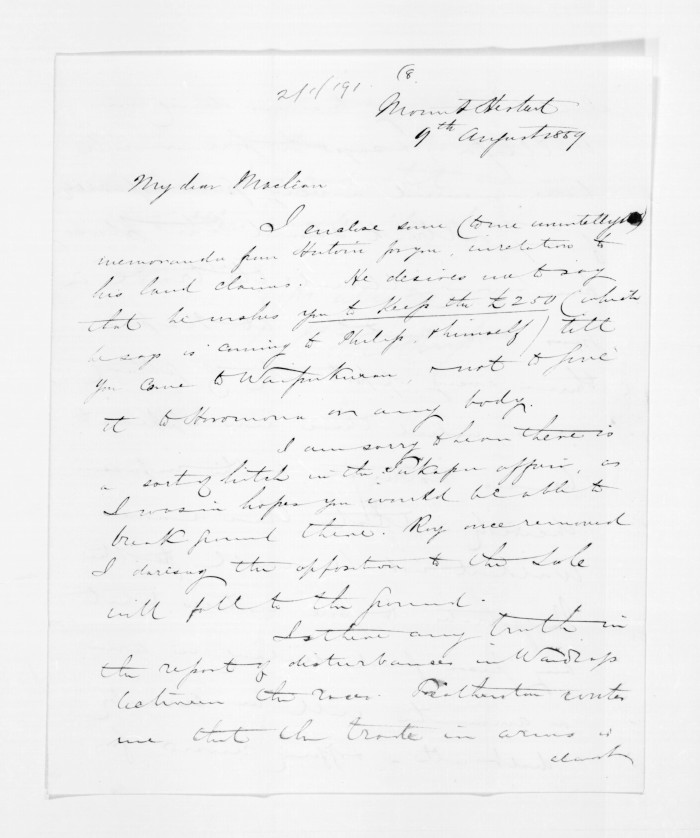 2/1/191 (8
Mount Herbert
9th August 1859
My dear Maclean
I enclose some (to me unintelligible)
memoranda from Hatoin for you, in relation to
his land claims. He desires me to say
that he wishes you to keep the £250 (which
he says is coming to Philip & himself) till
you come to Waipukurau, & not to give
it to Horomona or any body.
I am sorry to hear there is
a sort of hitch in the Tukapu affair, as
I was in hopes you would be able to
break ground there. Roy once removed
I daresay the opposition to the Sale
will fall to the ground.
Is there any truth in
the report of disturbances in
between the races. Featherston writes
me that the trade in arms is